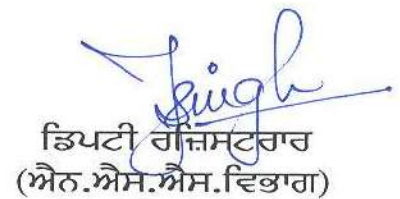 Singh
ਡਿਪਟੀ ਰਜਿਸਟਰਾਰ
(ਐਨ.ਐਸ.ਐਸ.ਵਿਭਾਗ)